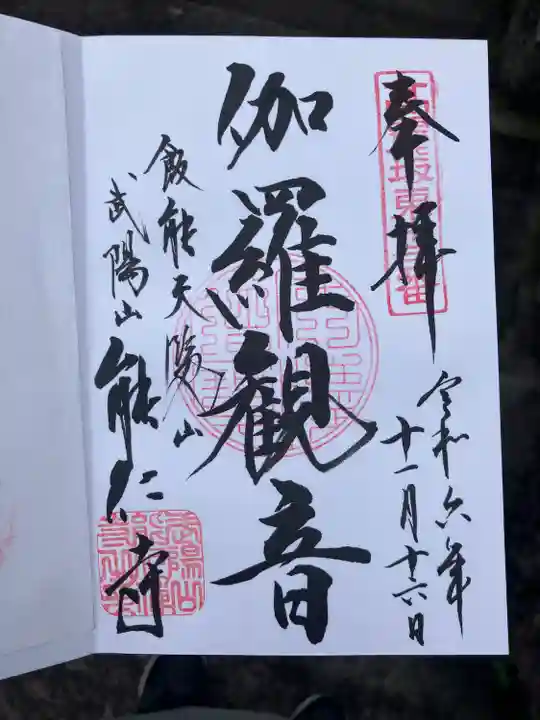 奉拝
令和六年
十一月十六日
伽羅観音
飯能天覧山
武陽山能仁寺